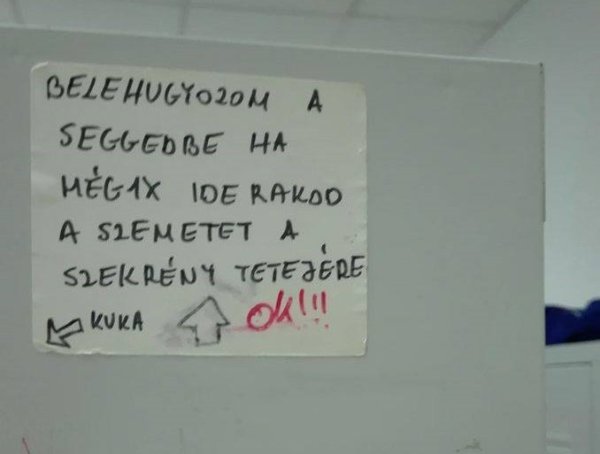 BELEHUGYOZOM A
SEGGEDBE HA
MÉG1X IDE RAKOD
A SZEMETET A
SZEKRÉNY TETEJÉRE
KUKA
OK!!!